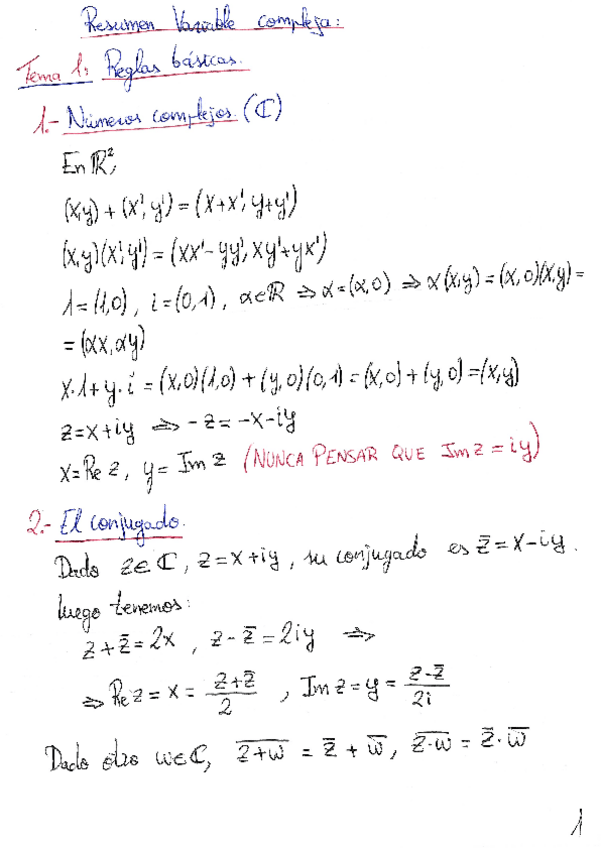 Resumen Variable compleja:
Tema 1: Reglas básicas.
1.- Números complejos. (ℂ)
En ℝ²,
(x,y) + (x',y') = (x+x', y+y')
(x,y)(x',y') = (xx'-yy', xy'+yx')
1=(1,0), i=(0,1), α∈ℝ ⇒ α=(α,0) ⇒ α(x,y) = (α,0)(x,y) =
= (αx, αy)
x·1+y·i = (x,0)(1,0) + (y,0)(0,1) = (x,0) + (y,0) = (x,y)
z=x+iy ⇒ -z = -x-iy
x=Re z, y= Im z (NUNCA PENSAR QUE Im z = iy)
2.- El conjugado.
Dado z∈ℂ, z=x+iy, su conjugado es z̅=x-iy.
luego tenemos:
z+z̅=2x, z-z̅=2iy ⇒
⇒ Re z = x = (z+z̅)/2, Im z = y = (z-z̅)/2i
Dado otro w∈ℂ, \overline{z+w} = z̅ + w̅, \overline{z·w} = z̅·w̅
1